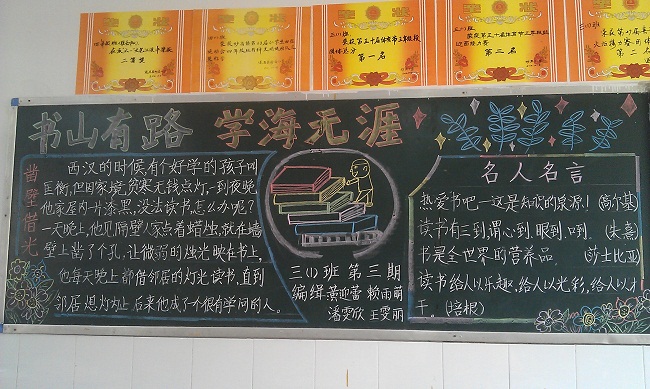 二等奖
第一名
第三名
书山有路 学海无涯
凿壁借光
西汉的时候,有个好学的孩子叫
匡衡,但因家境贫寒无钱点灯,一到夜晚,
他家屋内一片漆黑,没法读书,怎么办呢?
一天晚上,他见隔壁人家点着蜡烛,就在墙
壁上凿了个孔,让微弱的烛光映在书上,
他每天晚上都借邻居的灯光读书,直到
邻居熄灯为止,后来他成了一个很有学问的人。
三(1)班 第三期
编缉 黄迎蕾 赖雨萌
潘雯欣 王雯丽
名人名言
热爱书吧—这是知识的泉源!(高尔基)
读书有三到谓心到眼到口到.(朱熹)
书是全世界的营养品. (莎士比亚)
读书给人以乐趣,给人以光彩,给人以才
干。(培根)